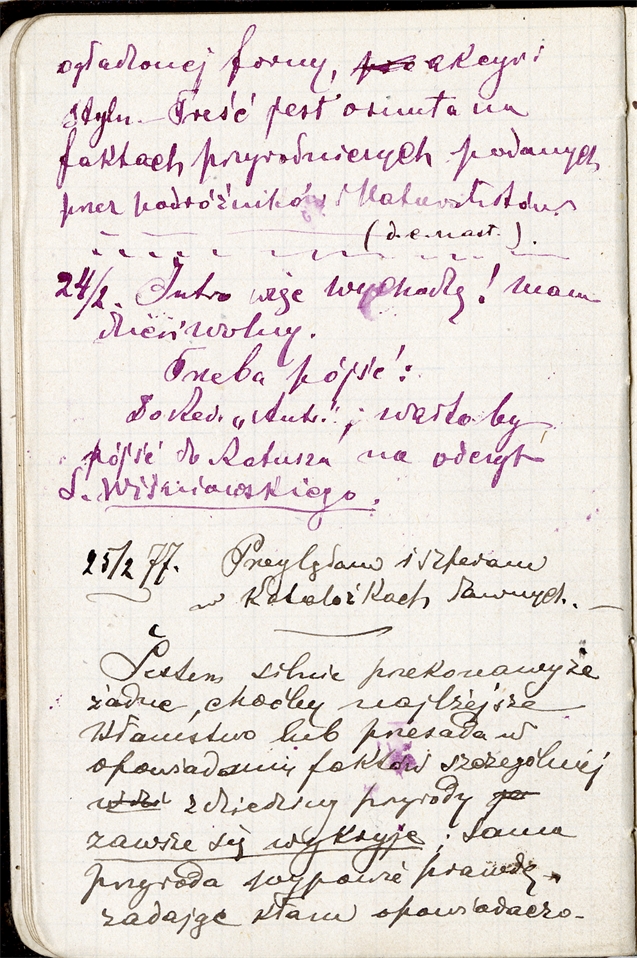 ogładzonej formy, pro akcyi i
stylu. – Treść jest osnuta na
faktach przyrodniczych podanych
przez podróżników i Naturalistów.
(d. c. nast.).
24/2. Jutro więc wychodzę! mam
dzień wolny.
Trzeba pójść:
Do Red. „ ”; warto by
pójść do Ratusza na odczyt
S. Wiśniowskiego.
25/2 77. Przeglądam i szperam
w Kataloźkach dawnych. –
Jestem silnie przekonany że
żadne, choćby najlżejsze
kłamstwo lub przesada w
opowiadaniu faktów szczególniej
z dziedziny przyrody
zawsze się wykryje; sama
przyroda wypowie prawdę,
zadając kłam opowiadaczo-